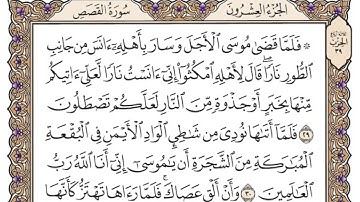 الجزء العشرون
سورة القصص
۞ فَلَمَّا قَضَىٰ مُوسَى ٱلْأَجَلَ وَسَارَ بِأَهْلِهِۦٓ ءَانَسَ مِن جَانِبِ
ٱلطُّورِ نَارًا قَالَ لِأَهْلِهِ ٱمْكُثُوٓا۟ إِنِّىٓ ءَانَسْتُ نَارًا لَّعَلِّىٓ ءَاتِيكُم
مِّنْهَا بِخَبَرٍ أَوْ جَذْوَةٍ مِّنَ ٱلنَّارِ لَعَلَّكُمْ تَصْطَلُونَ
٢٩ فَلَمَّآ أَتَىٰهَا نُودِىَ مِن شَٰطِئِ ٱلْوَادِ ٱلْأَيْمَنِ فِى ٱلْبُقْعَةِ
ٱلْمُبَٰرَكَةِ مِنَ ٱلشَّجَرَةِ أَن يَٰمُوسَىٰٓ إِنِّىٓ أَنَا ٱللَّهُ رَبُّ
ٱلْعَٰلَمِينَ ٣٠ وَأَنْ أَلْقِ عَصَاكَ فَلَمَّا رَءَاهَا تَهْتَزُّ كَأَنَّهَا